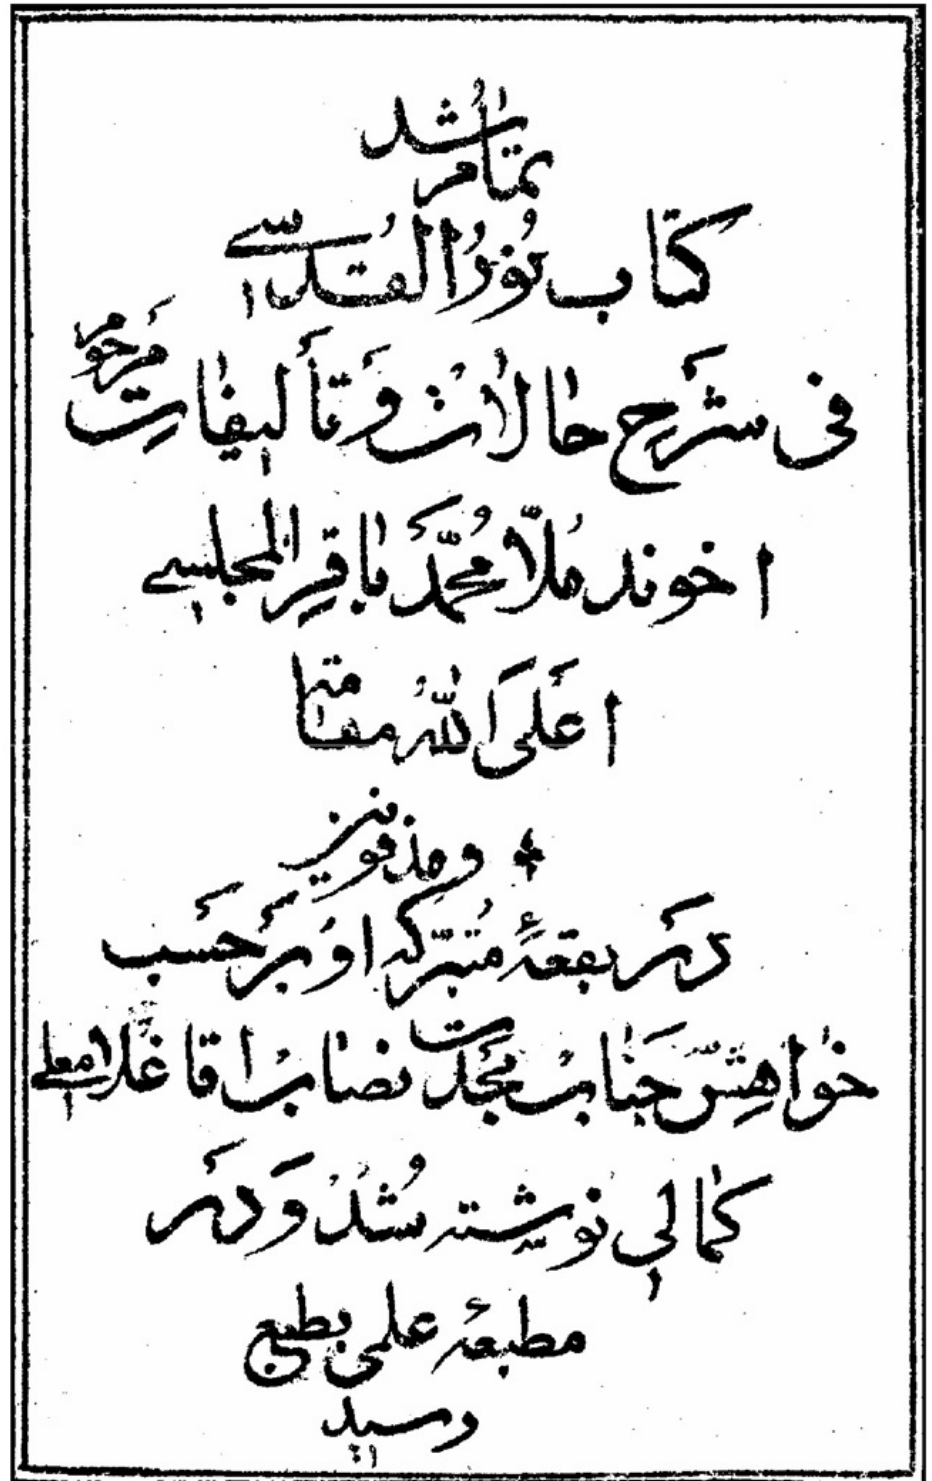 تمام شد
كتاب نُورُ القُدسِی
فی شَرحِ حالاتْ وَ تَألیفاتِ مَرحوم
اخوند مُلّا مُحمَّد باقِر المجلسی
اَعلَی اللّٰهُ مقامَه
و مدفونین
دَر بقعهٔ مُتبرّکه او بَر حَسب
خواهِشِ جَناب مَجدت نصاب اقا غلامعلی
کمالی نوشته شُد وَ دَر
مطبعهٔ علمی بطبع
رسید